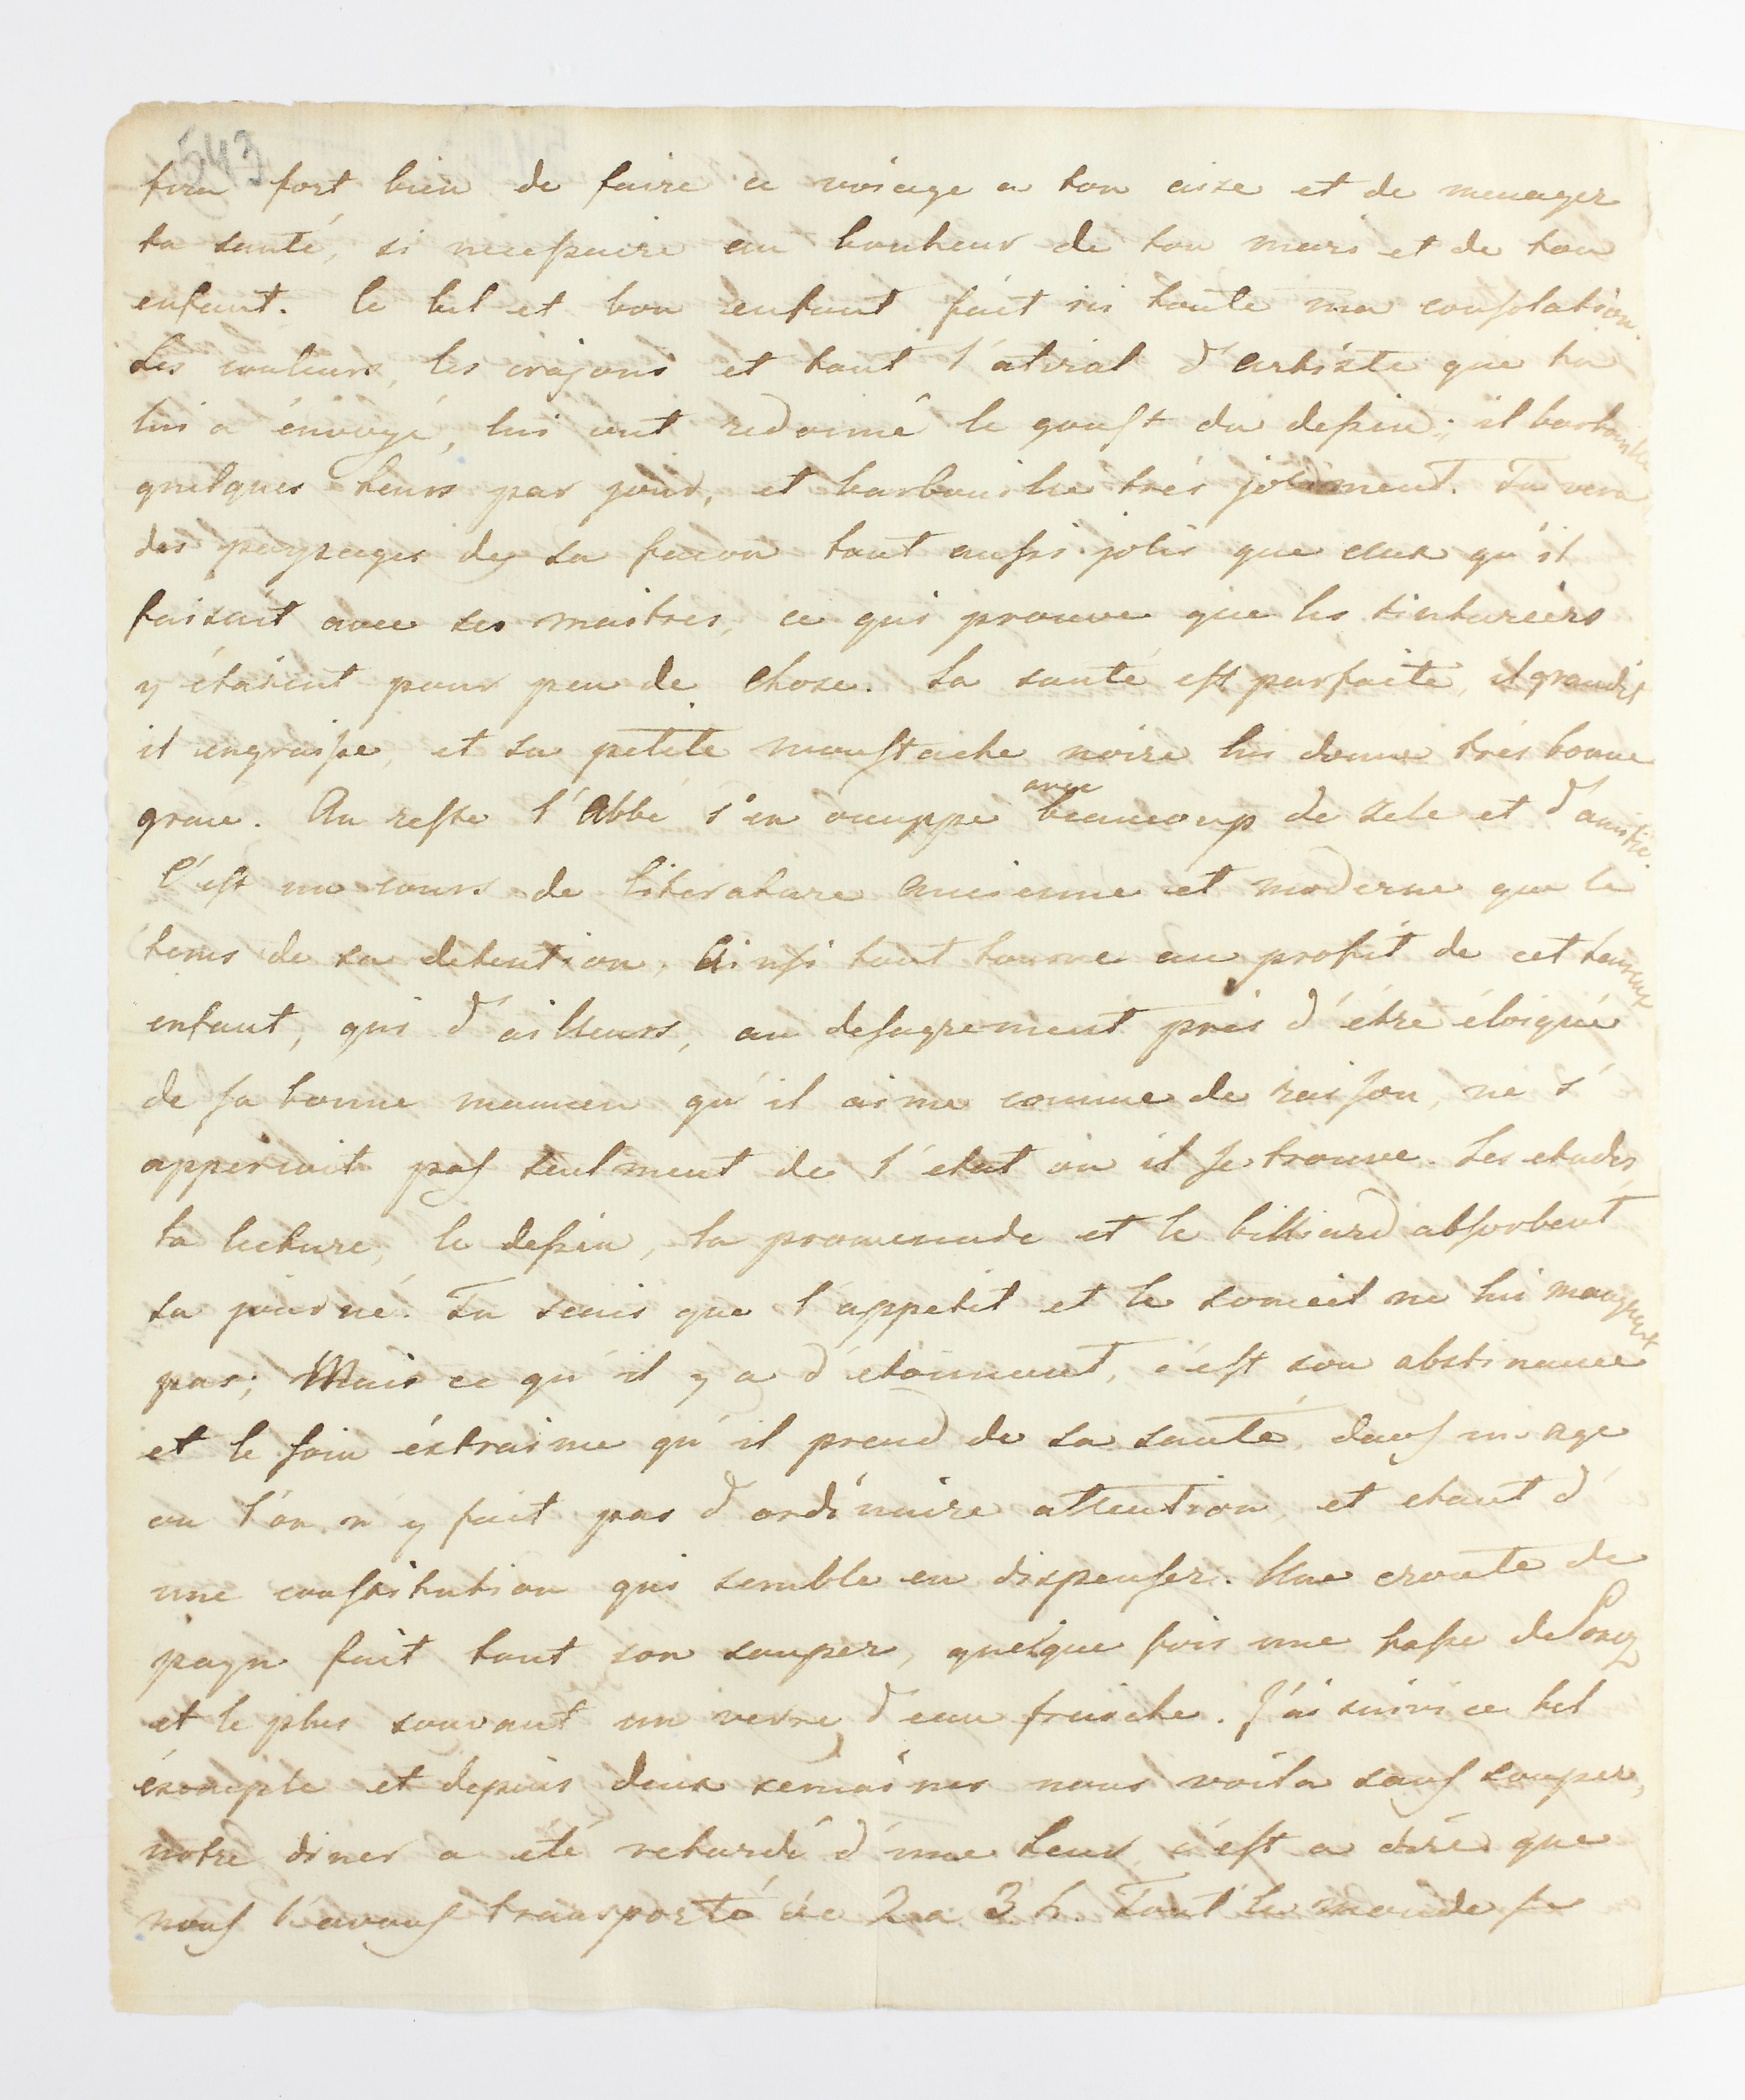 543
fera fort bien de faire ce voiage a ton aise et de menager
ta santé, si necessaire au bonheur de ton mari et de ton
enfant. Ce bel et bon enfant fait ici toute ma consolation.
Les couleurs, les crajons et tout l'atiral d'artiste que tu
lui a énvoyé, lui ont redonné le goust du dessin; il barbouille
quelques heurs par jour, et barbouille trés joliment. Tu vera
des paysages de sa facon tout aussi jolis que ceux qu'il
faisait avec ses maitres, ce qui prouve que les tinturiers
y étaient pour peu de chose. Sa santé est parfaite, il grandit
il engraisse, et sa petite moustache noire lui donne trés bonne
grace. Au reste l'Abbé s'en occuppe avec beaucoup de zele et d'amitié.
C'est un cours de literature ancienne et moderne que le
tems de sa detention. Ainsi tout tourne au profit de cet heureux
enfant, qui d'ailleurs, au desagrement prés d'étre éloigné
de sa bonne maman qu'il aime comme de raison, ne s'
appercoit pas seulment de l'etat ou il se trouve. Les etudes,
la lecture, le dessin, la promenade et le billiard absorbent
sa journé. Tu scais que l'appetit et le someil ne lui manquent
pas; Mais ce qu'il y a d'etonnant, c'est son abstinance
et le soin éxtraime qu'il prend de sa santé, dans un age
ou l'on n'y fait pas d'ordinaire attention, et etant d'
une constitution qui semble en dispenser. Une croute de
payn fait tout son souper, quelque fois une tasse de
et le plus souvant un verre d'eau fraiche. J'ai suivi ce bel
éxemple et depuis deux semaines nous voila sans souper,
notre diner a été retardé d'une heur, c'est a dire que
nous l'avons transporté de 2 a 3 h. Tout le monde se